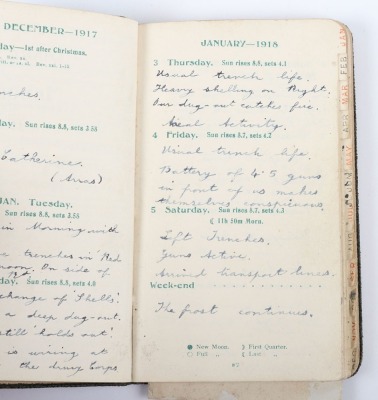 DECEMBER—1917
day—1st after Christmas.
trenches.
day. Sun rises 8.8, sets 3.58
Catherine.
(Arras)
JAN. Tuesday.
Sun rises 8.8, sets 3.59
in Morning with
trenches in Red
On side of
day. Sun rises 8.8, sets 4.0
change of Shells!
a deep dug-out.
still holds out!
us wiring at
the
JANUARY—1918
3 Thursday. Sun rises 8.8, sets 4.1
Usual trench life.
Heavy shelling on Right.
Our dug-out catches fire.
Aerial Activity.
4 Friday. Sun rises 8.7, sets 4.2
Usual trench life.
Battery of 4.5 guns
in front of us makes
themselves conspicuous.
5 Saturday. Sun rises 8.7, sets 4.3
☾ 11h 50m Morn.
Left Trenches.
Guns Active.
Arrived transport lines.
Week-end
The frost continues.
● New Moon. ☽ First Quarter.
○ Full „ ☾ Last „
JAN
FEB
MAR
APR